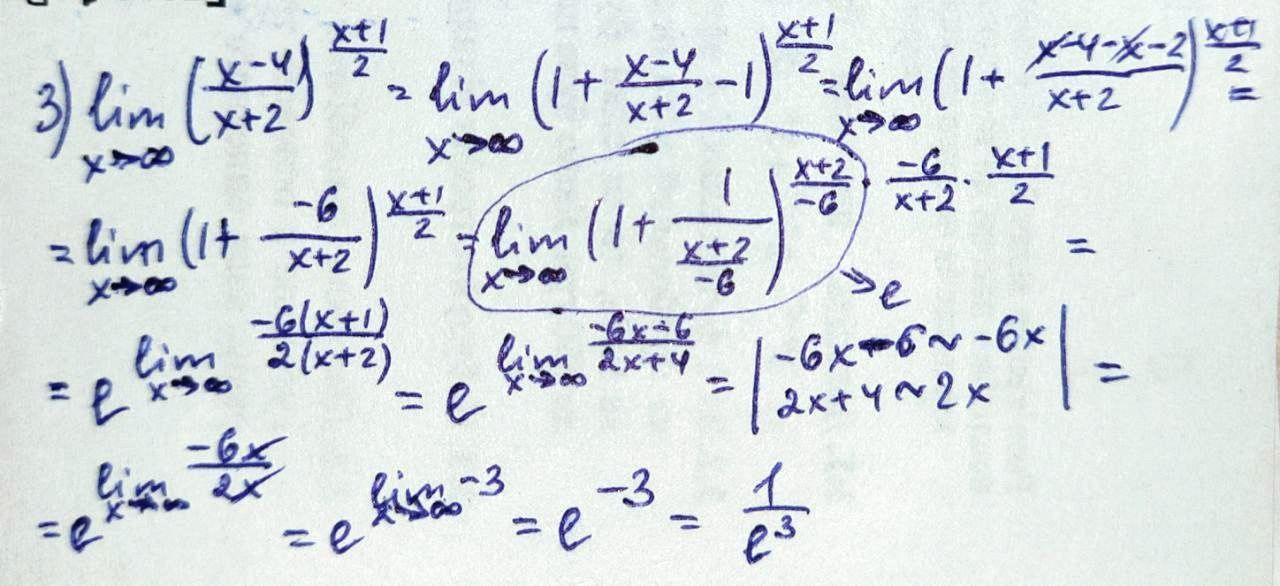 3) lim x→∞ ((x-4)/(x+2))^((x+1)/2) = lim x→∞ (1 + (x-4)/(x+2) - 1)^((x+1)/2) = lim x→∞ (1 + (x-4-x-2)/(x+2))^((x+1)/2) =
= lim x→∞ (1 + (-6)/(x+2))^((x+1)/2) = lim x→∞ (1 + 1/((x+2)/(-6)))^((x+2)/(-6) · (-6)/(x+2) · (x+1)/2) =
→ e
= e^(lim x→∞ (-6(x+1))/(2(x+2))) = e^(lim x→∞ (-6x-6)/(2x+4)) = | -6x-6 ~ -6x 2x+4 ~ 2x | =
= e^(lim x→∞ (-6x)/(2x)) = e^(lim x→∞ -3) = e^(-3) = 1/e^3